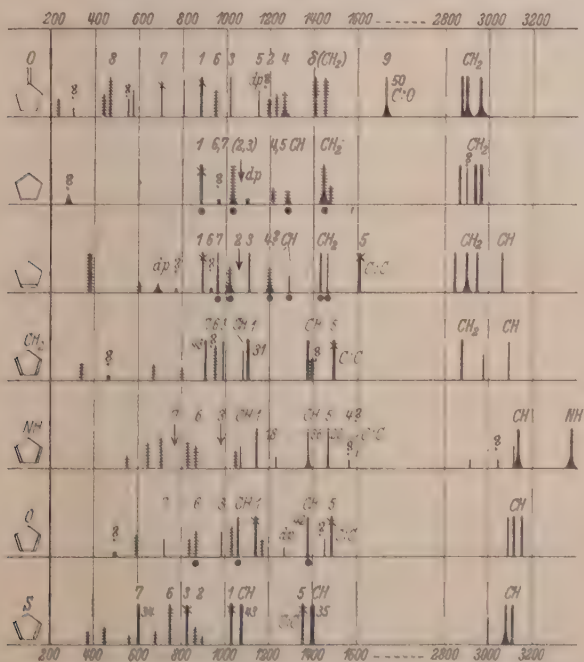 200 400 600 800 1000 1200 1400 1600 2800 3000 3200
O 8 7 1 6 3 5 2 4 δ(CH₂) 9 CH₂
dp 50
C:O
1 6,7 (2,3) 4,5 CH CH₂ CH₂
dp
1 6 7 2 3 4 CH CH₂ 5 CH₂ CH
dp C:C
CH₂ 6 CH 1 CH 5 CH₂ CH
31
C:C
NH 7 6 3 CH 1 CH 5 CH NH
18 C:C
O 7 6 3 CH 1 CH 5 CH
dp C:C
S 7 6 3 2 1 CH 5 CH CH
43 C:C 35
200 400 600 800 1000 1200 1400 1600 2800 3000 3200